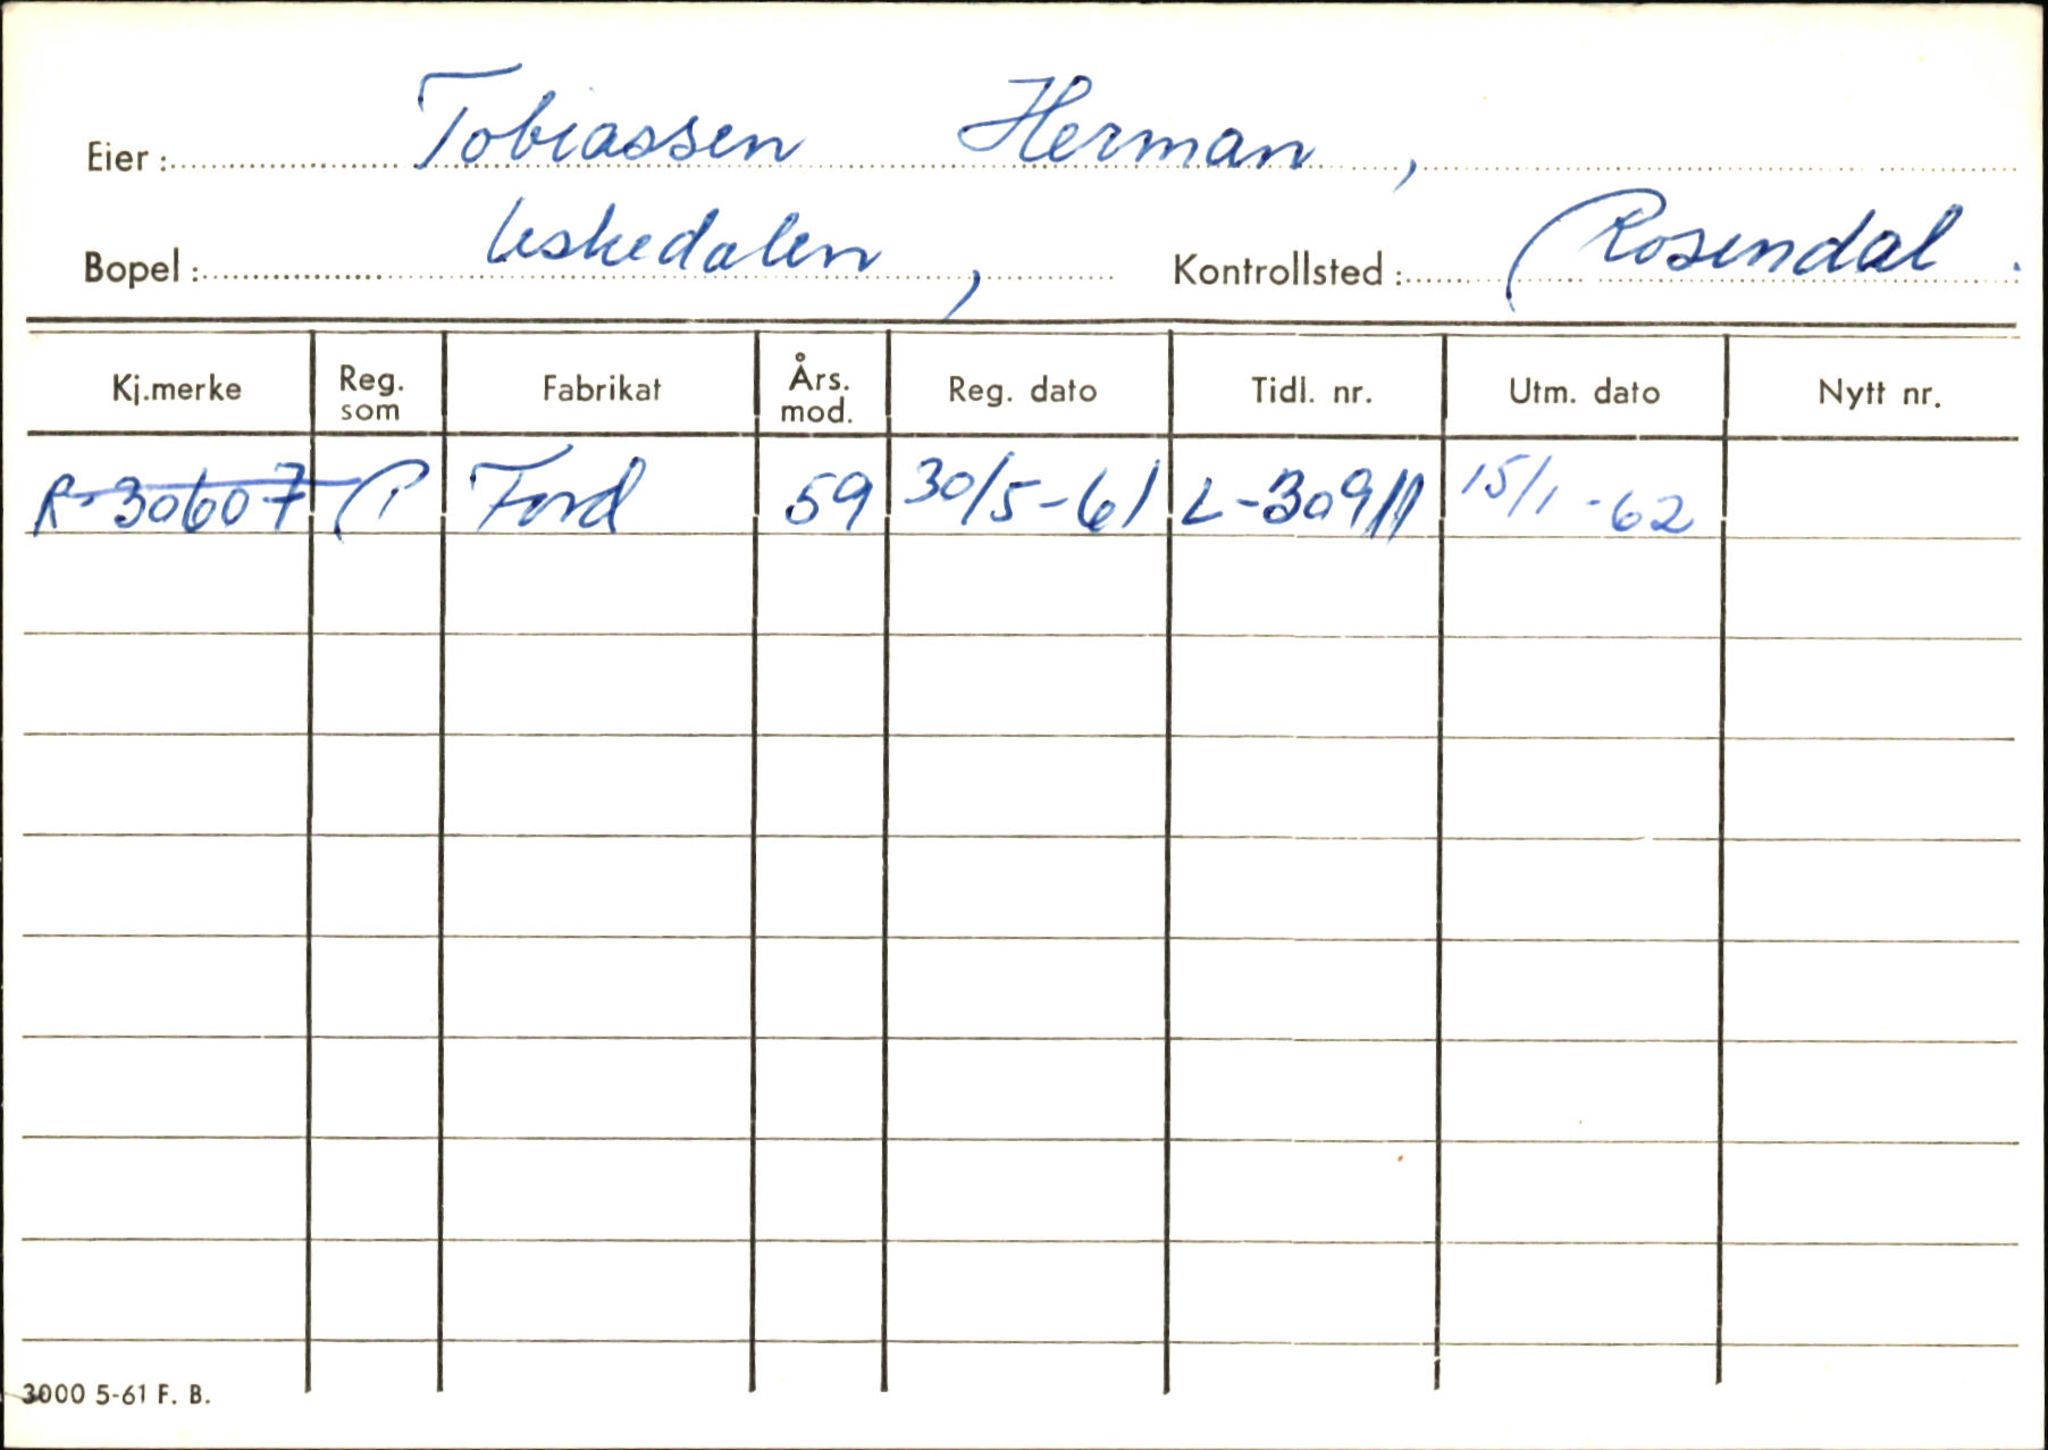 Eier: Tobiassen Herman,
Bopel: Uskedalen, Kontrollsted: Rosendal.
Kj.merke Reg. som Fabrikat Års. mod. Reg. dato Tidl. nr. Utm. dato Nytt nr.
R-30607 P Ford 59 30/5-61 L-30911 15/1-62
3000 5-61 F. B.